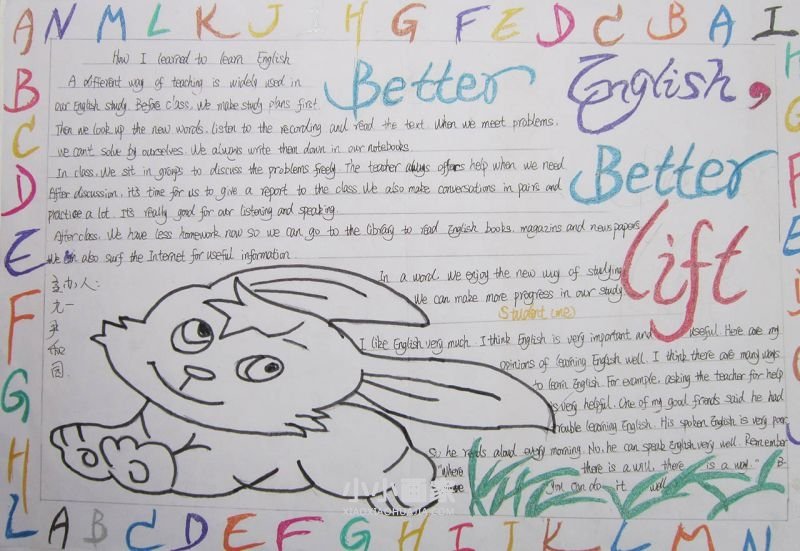 A N M L K J H G F E D C B A I
How I learned to learn English
A different way of teaching is widely used in
our English study. Before class, We make study plans first.
Then we look up the new words, listen to the recording and read the text. When we meet problems,
we can't solve by ourselves. We always write them down in our notebooks.
In class, We sit in groups to discuss the problems freely. The teacher always offers help when we need
After discussion, it's time for us to give a report to the class. We also make conversations in pairs and
practice a lot. It's really good for our listening and speaking.
After class, We have less homework now so we can go to the library to read English books, magazins and newspapers
We can also surf the Internet for useful information.
In a word, we enjoy the new way of studying
We can make more progress in our study
Better English,
Better lift
Student (me)
I like English very much. I think English is very important and useful. Here are my
opinions of learning English well. I think there are many ways
to learn English. For example, asking the teacher for help
is very helpful. One of my good friends said he had
trouble learning English. His spoken English is very poor
So he reads aloud every morning. No, he can speak English very well. Remember
"Where there is a will, there is a way." B-
You can do it well
主办人:
B
C
D
E
F
G
H
L A B C D E F G H I J K L M N
小小画家
XIAOXIAOHUAJIA.COM